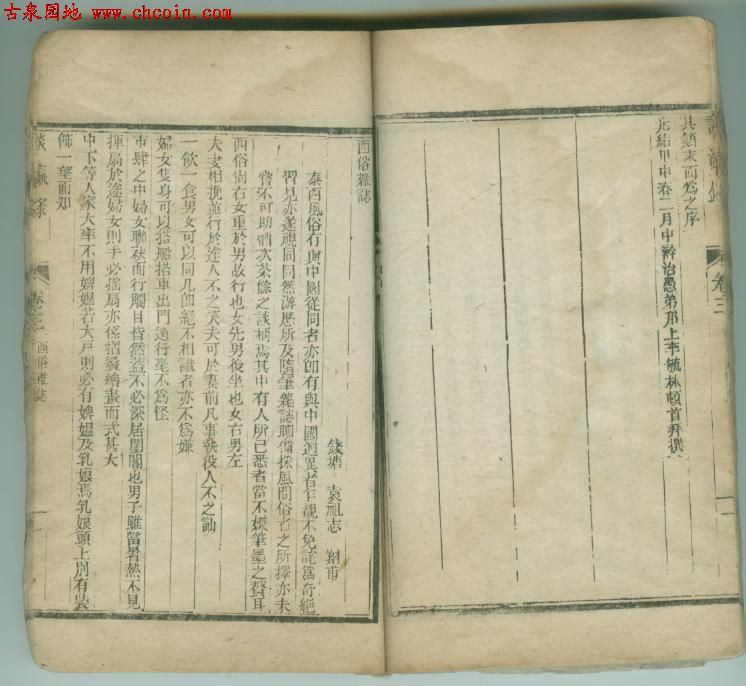 古泉园地 www.chcoin.com
其顛末而為之序
光緒甲申春二月中澣治愚弟邢上李毓林頓首拜撰
卷三
西俗雜誌
錢塘 袁祖志 翔甫
泰西風俗有與中國從同者亦卽有與中國迥異者乍覩不免詫為奇絕
習見亦遂視同固然游歷所及隨筆雜誌聊備採風問俗者之所擇亦未
嘗不可助酒次茶餘之談柄焉其中有人所已悉者當不嫌筆墨之贅耳
西俗尙右女重於男故行也女先男後坐也女右男左
夫妻相挽並行於途人不之笑夫可於妻前凡事執役人不之訕
一飲一食男女可以同几卽絕不相識者亦不為嫌
婦女隻身可以搭船搭車出門遠行毫不為怪
市肆之中婦女聯袂而行觸目皆然蓋不必深居閨閣也男子雖當暑熱不見
揮扇於途婦女則手必搖扇亦係摺疊繪畫而式甚大
中下等人家大率不用婢媼若大戶則必有婢媼及乳娘焉乳娘頭上別有裝
飾一望而知
談瀛錄
卷三
西俗雜誌
一